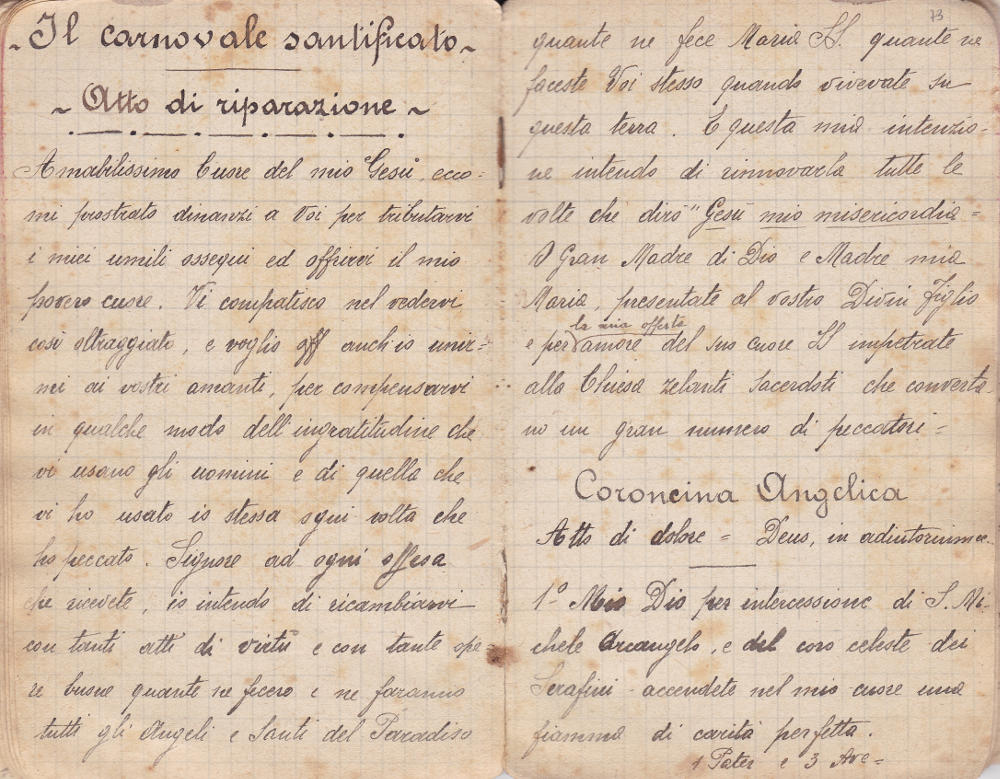 ~ Il carnovale santificato ~
~ Atto di riparazione ~
Amabilissimo Cuore del mio Gesù, ecco=
mi prostrato dinanzi a Voi per tributarvi
i miei umili ossequi ed offrirvi il mio
povero cuore. Vi compatisco nel vedervi
così oltraggiato, e voglio off anch'io unir=
mi ai vostri amanti, per compensarvi
in qualche modo dell'ingratitudine che
vi usano gli uomini e di quella che
vi ho usato io stessa ogni volta che
ho peccato. Signore ad ogni offesa
che ricevete, io intendo di ricambiarvi
con tanti atti di virtù e con tante ope
re buone quante ne fecero e ne faranno
tutti gli Angeli e Santi del Paradiso
73
quante ne fece Maria SS. quante ne
faceste Voi stesso quando vivevate su
questa terra. E questa mia intenzio=
ne intendo di rinnovarla tutte le
volte che dirò "Gesù mio misericordia=
O Gran Madre di Dio e Madre mia
Maria, presentate al vostro Divin Figlio
la mia offerta
e per amore del suo cuore SS impetrate
alla Chiesa zelanti Sacerdoti che converta
no un gran numero di peccatori=
Coroncina Angelica
Atto di dolore = Deus, in adiutorium ec.
1º Mio Dio per intercessione di S. Mi
chele Arcangelo, e del coro celeste dei
Serafini accendete nel mio cuore una
fiamma di carità perfetta.
1 Pater e 3 Ave=